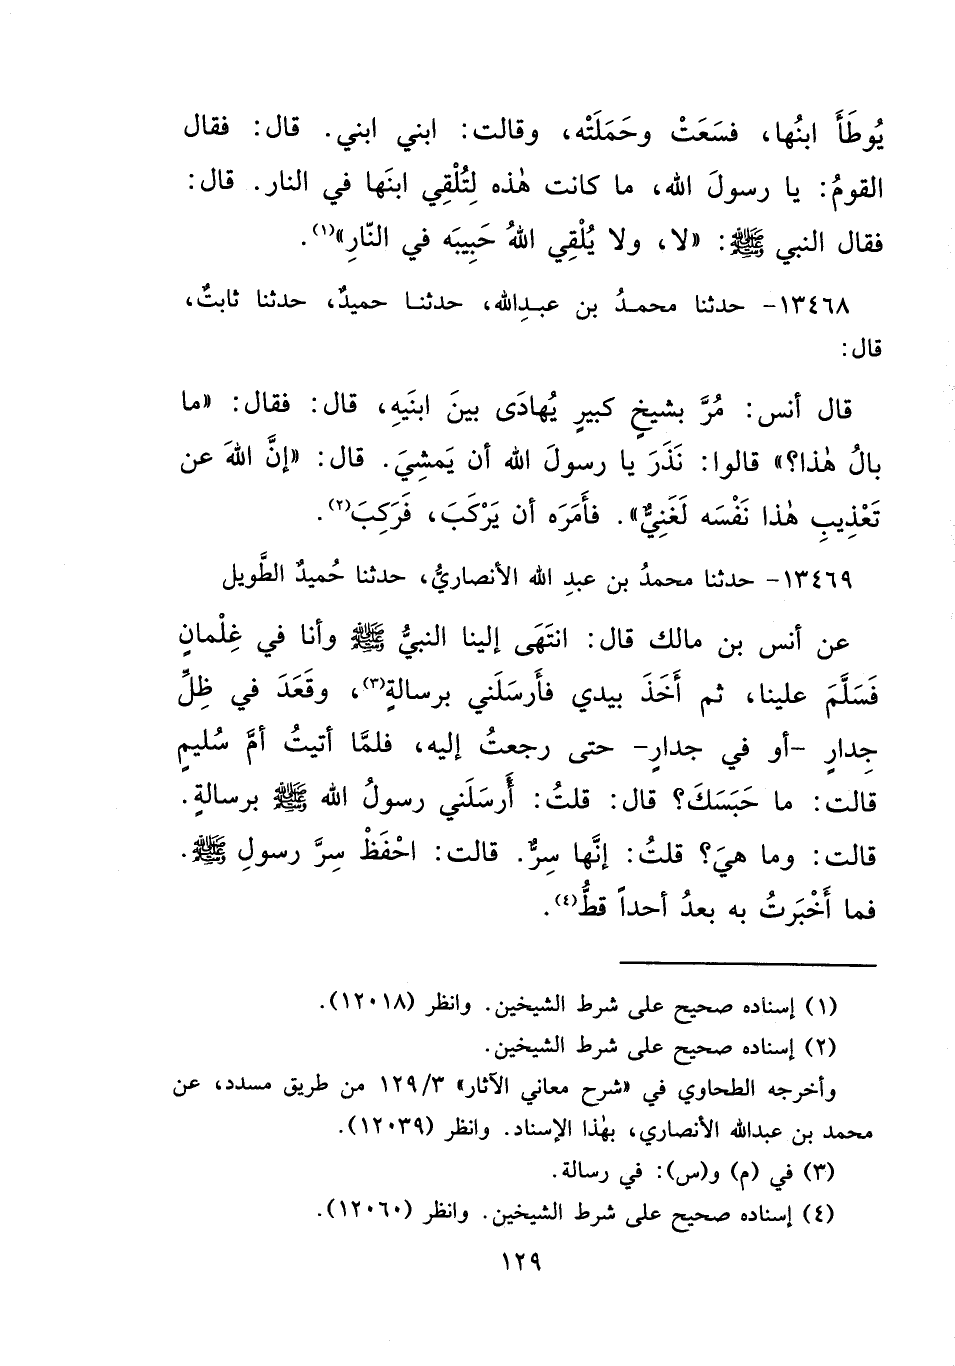 يُوطَأَ ابنُها، فسَعَتْ وحَمَلَتْه، وقالت: ابني ابني. قال: فقال
القومُ: يا رسولَ الله، ما كانت هٰذه لِتُلْقِي ابنَها في النار. قال:
فقال النبي ﷺ: «لا، ولا يُلْقِي اللهُ حَبِيبَه في النّارِ»(١).
١٣٤٦٨- حدثنا محمدُ بن عبدِالله، حدثنا حميدٌ، حدثنا ثابتٌ،
قال:
قال أنس: مُرَّ بشيخٍ كبيرٍ يُهادَى بينَ ابنَيهِ، قال: فقال: «ما
بالُ هٰذا؟» قالوا: نَذَرَ يا رسولَ الله أن يَمشِيَ. قال: «إنَّ اللهَ عن
تَعْذِيبِ هٰذا نَفْسَه لَغَنِيٌّ». فأَمَرَه أن يَرْكَبَ، فَرَكِبَ(٢).
١٣٤٦٩- حدثنا محمدُ بن عبدِ الله الأنصاريُّ، حدثنا حُميدٌ الطَّويل
عن أنس بن مالك قال: انتَهَى إلينا النبيُّ ﷺ وأنا في غِلْمانٍ
فَسَلَّمَ علينا، ثم أَخَذَ بيدي فأَرسَلَني برسالةٍ(٣)، وقَعَدَ في ظِلِّ
جِدارٍ -أو في جدارٍ- حتى رجعتُ إليه، فلمَّا أتيتُ أمَّ سُليمٍ
قالت: ما حَبَسَكَ؟ قال: قلتُ: أَرسَلَني رسولُ الله ﷺ برسالةٍ.
قالت: وما هيَ؟ قلتُ: إنَّها سِرٌّ. قالت: احْفَظْ سِرَّ رسولِ ﷺ.
فما أَخْبَرتُ به بعدُ أحداً قطُّ(٤).
(١) إسناده صحيح على شرط الشيخين. وانظر (١٢٠١٨).
(٢) إسناده صحيح على شرط الشيخين.
وأخرجه الطحاوي في «شرح معاني الآثار» ١٢٩/٣ من طريق مسدد، عن
محمد بن عبدالله الأنصاري، بهٰذا الإسناد. وانظر (١٢٠٣٩).
(٣) في (م) و(س): في رسالة.
(٤) إسناده صحيح على شرط الشيخين. وانظر (١٢٠٦٠).
١٢٩